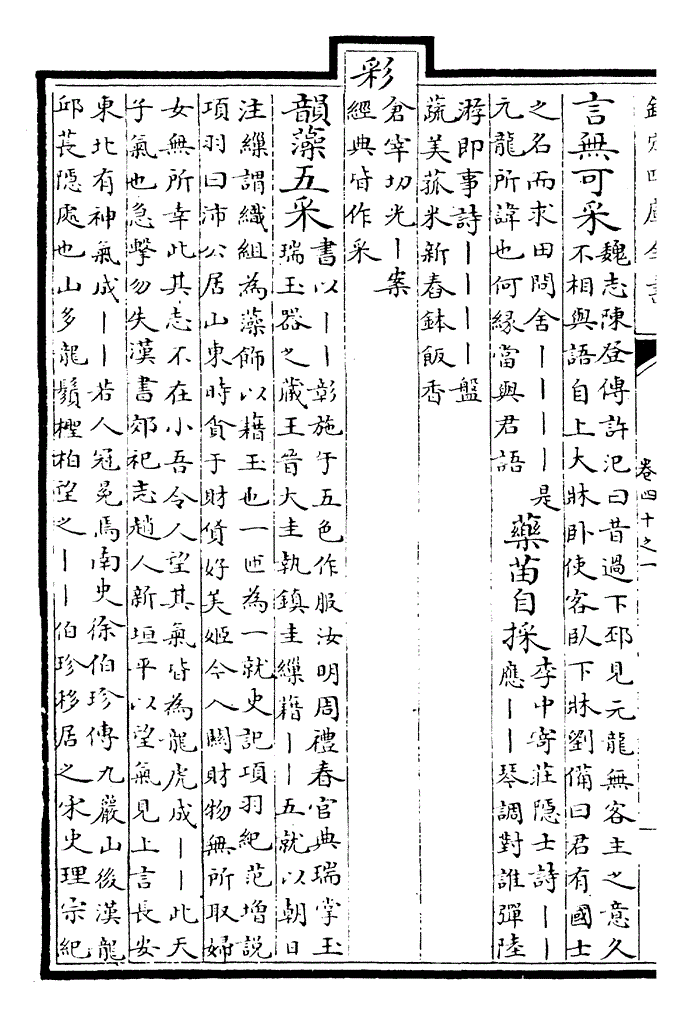 欽定四庫全書 卷四十之一
言無可采
魏志陳登傳許汜曰昔過下邳見元龍無客主之意久
不相與語自上大牀卧使客臥下牀劉備曰君有國士
之名而求田問舍丨丨丨丨是
元龍所諱也何緣當與君語
藥苗自採
李中寄莊隱士詩丨丨
應丨丨琴調對誰彈陸
游即事詩丨丨丨丨盤
蔬美菰米新舂鉢飯香
彩
倉宰切光丨案
經典皆作采
韻藻五采
書以丨丨彰施于五色作服汝明周禮春官典瑞掌玉
瑞玉器之藏王晉大圭執鎮圭繅藉丨丨五就以朝日
注繅謂織組為藻飾以藉玉也一帀為一就史記項羽紀范增說
項羽曰沛公居山東時貪于財貨好美姬今入關財物無所取婦
女無所幸此其志不在小吾令人望其氣皆為龍虎成丨丨此天
子氣也急擊勿失漢書郊祀志趙人新垣平以望氣見上言長安
東北有神氣成丨丨若人冠冕焉南史徐伯珍傳九巖山後漢龍
邱萇隱處也山多龍鬚檉柏望之丨丨伯珍移居之宋史理宗紀